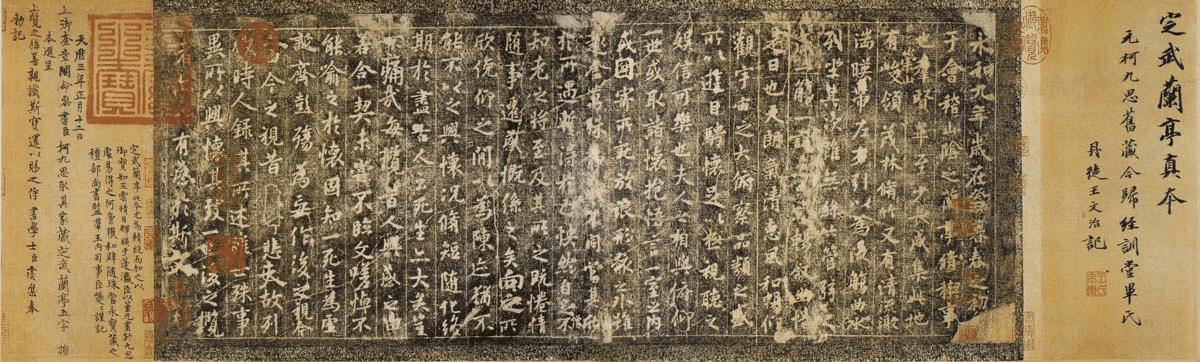 定武蘭亭真本
元柯九思舊藏今歸經訓堂畢氏
丹徒王文治記
永和九年歲在癸丑暮春之初
于會稽山陰之蘭亭脩稧事
也羣賢畢至少長咸集此地
有峻領茂林脩竹又有清流激
湍暎帶左右引以為流觴曲水
列坐其次雖無
一觴一詠亦足以暢敘幽情
是日也天朗氣清惠風和暢仰
觀宇宙之大俯察品類之盛
所以遊目騁懷足以極視聽之
娛信可樂也夫人之相與俯仰
一世或取諸懷抱悟言一室之內
或因寄所託放浪形骸之外雖
趣舍萬殊靜躁不同當其欣
於所遇暫得於己快然自足不
知老之將至及其所之既惓情
隨事遷感慨係之矣向之所
欣俛仰之間以為陳迹猶不
能不以之興懷況脩短隨化終
期於盡古人云死生亦大矣豈
不痛哉每攬昔人興感之由
若合一契未嘗不臨文嗟悼不
能喻之於懷固知一死生為虛
誕齊彭殤為妄作後之視今
亦由今之視昔悲夫故列
敘時人錄其所述雖世殊事
異所以興懷其致一也後之攬
者有感於斯文
定武蘭亭此本尤為精絕而加之以
御寶如五雲晴日輝映于蓬瀛臣以董元畫於九思
處易得之何啻獲和璧隨珠當永寶藏之
禮部尚書監羣玉內司事臣巙巙謹記
天曆三年正月十二日
上御奎章閣命參書臣柯九思取其家藏定武蘭亭五字損
本進呈
上覽之稱善親識斯寶還以賜之侍書學士臣虞集奉
勑記